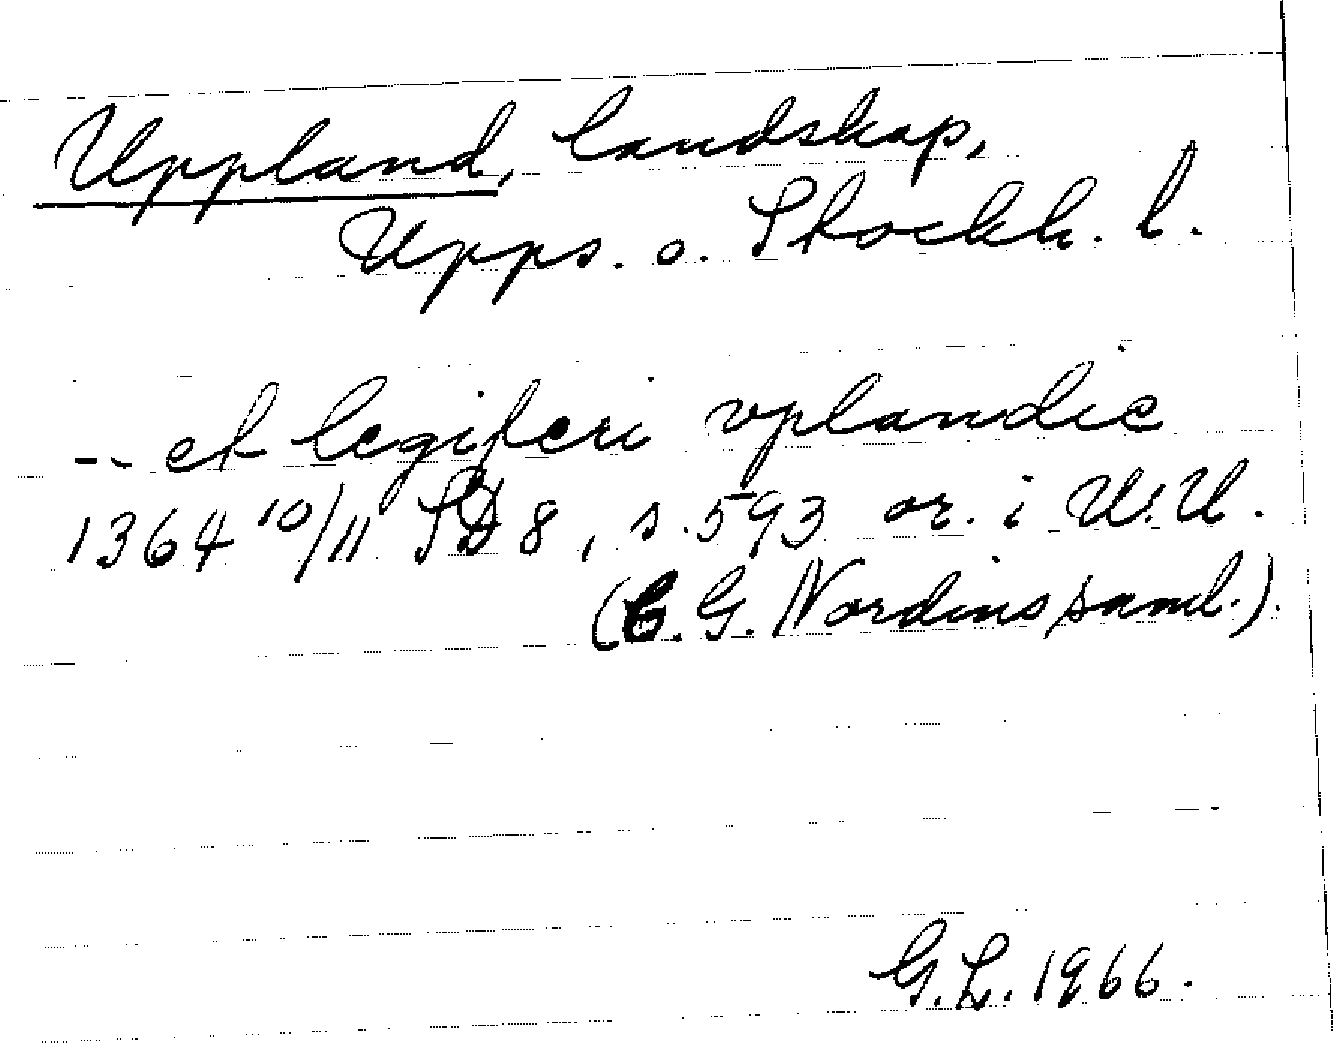 Uppland, landskap,
Upps. o. Stockh. l.
-- et legiferi vplandie
1364 10/11 SD 8, s. 593 or. i U.U.
(C. G. Nordins saml.).
G.L. 1966.